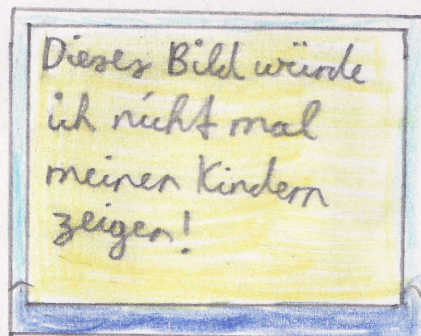 Dieses Bild würde
ich nicht mal
meinen Kindern
zeigen!